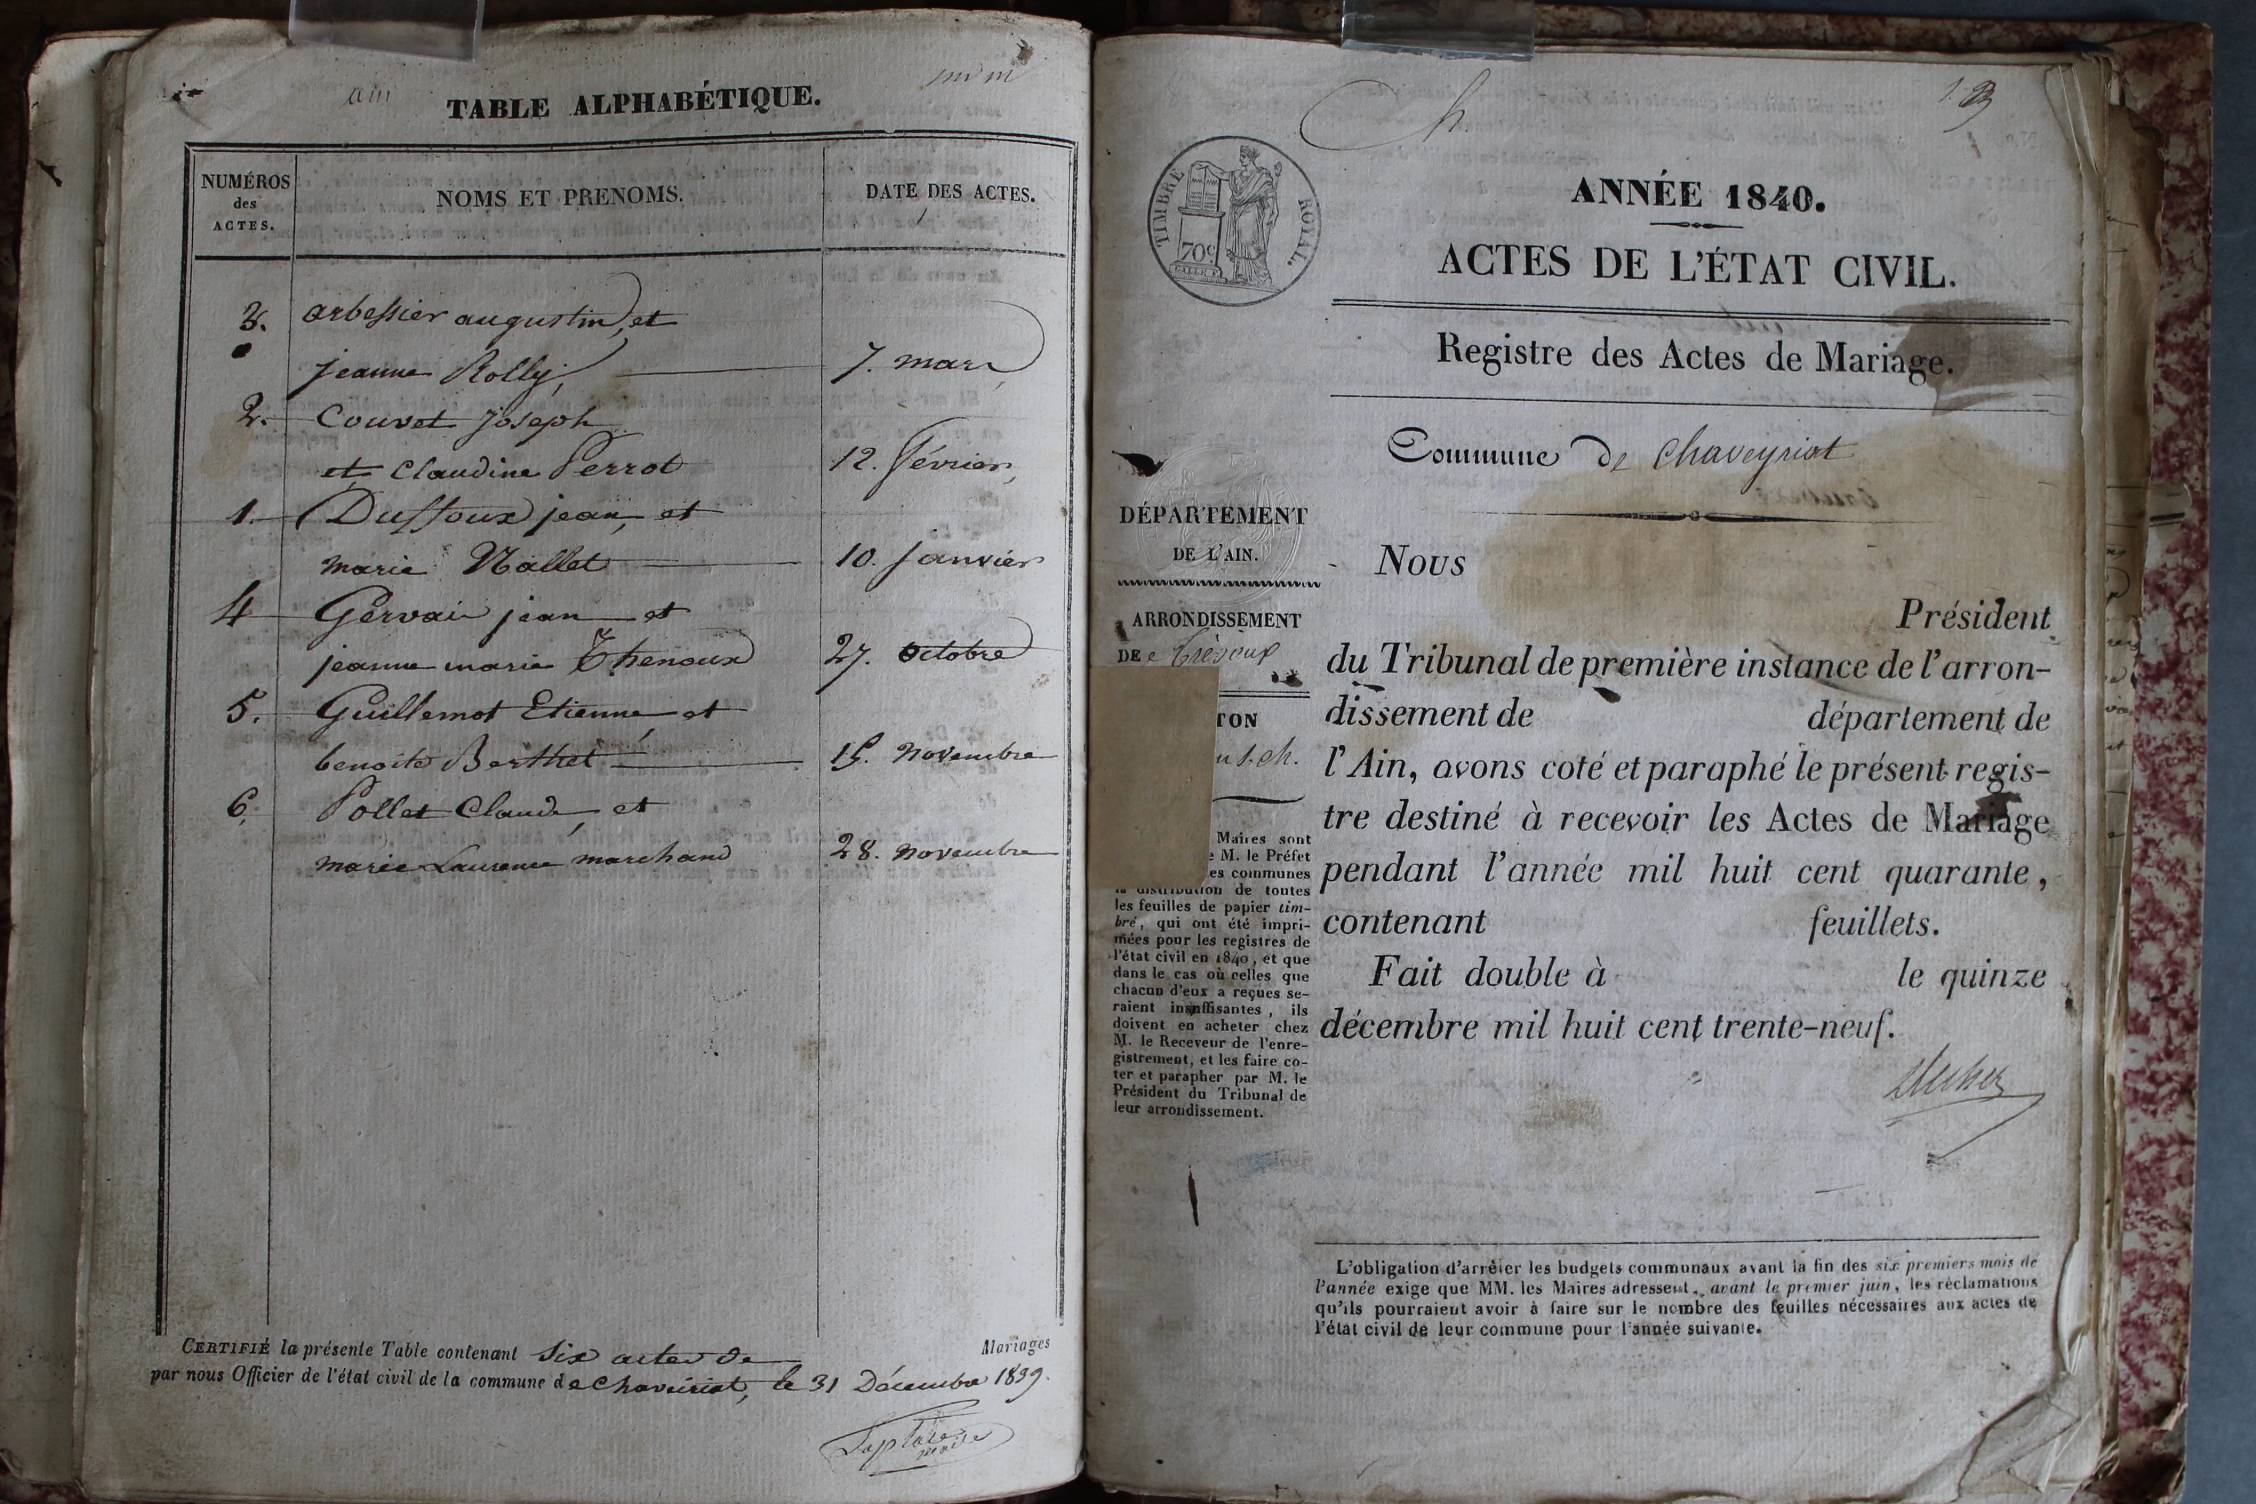 TABLE ALPHABÉTIQUE.
NUMÉROS
des
ACTES.
NOMS ET PRENOMS.
DATE DES ACTES.
3. arbessier augustin, et
jeanne Rolly, 7. mars
2. Couvet joseph
et Claudine Perrot 12. février,
1. Duffoux jean, et
marie Nallet 10. janvier
4 Gervais jean et
jeanne marie Thenoux 27. octobre
5. Guillemot Etienne et
benoite Berthet 15. novembre
6. Pollet Claude, et
marie Laurence marchand 28. novembre
CERTIFIÉ la présente Table contenant six actes de Mariages
par nous Officier de l'état civil de la commune de Chaveiriat, le 31 Décembre 1839.
TIMBRE ROYAL.
70c
ANNÉE 1840.
ACTES DE L'ÉTAT CIVIL.
Registre des Actes de Mariage.
Commune de Chaveyriat
DÉPARTEMENT
DE L'AIN.
ARRONDISSEMENT
DE Trévoux
TON
s. ch.
Maires sont
M. le Préfet
es communes
la distribution de toutes
les feuilles de papier tim-
bré, qui ont été impri-
mées pour les registres de
l'état civil en 1840, et que
dans le cas où celles que
chacun d'eux a reçues se-
raient insuffisantes, ils
doivent en acheter chez
M. le Receveur de l'enre-
gistrement, et les faire co-
ter et parapher par M. le
Président du Tribunal de
leur arrondissement.
Nous
Président
du Tribunal de première instance de l'arron-
dissement de département de
l'Ain, avons coté et paraphé le présent regis-
tre destiné à recevoir les Actes de Mariage
pendant l'année mil huit cent quarante,
contenant feuillets.
Fait double à le quinze
décembre mil huit cent trente-neuf.
L'obligation d'arrêter les budgets communaux avant la fin des six premiers mois de
l'année exige que MM. les Maires adressent, avant le premier juin, les réclamations
qu'ils pourraient avoir à faire sur le nombre des feuilles nécessaires aux actes de
l'état civil de leur commune pour l'année suivante.